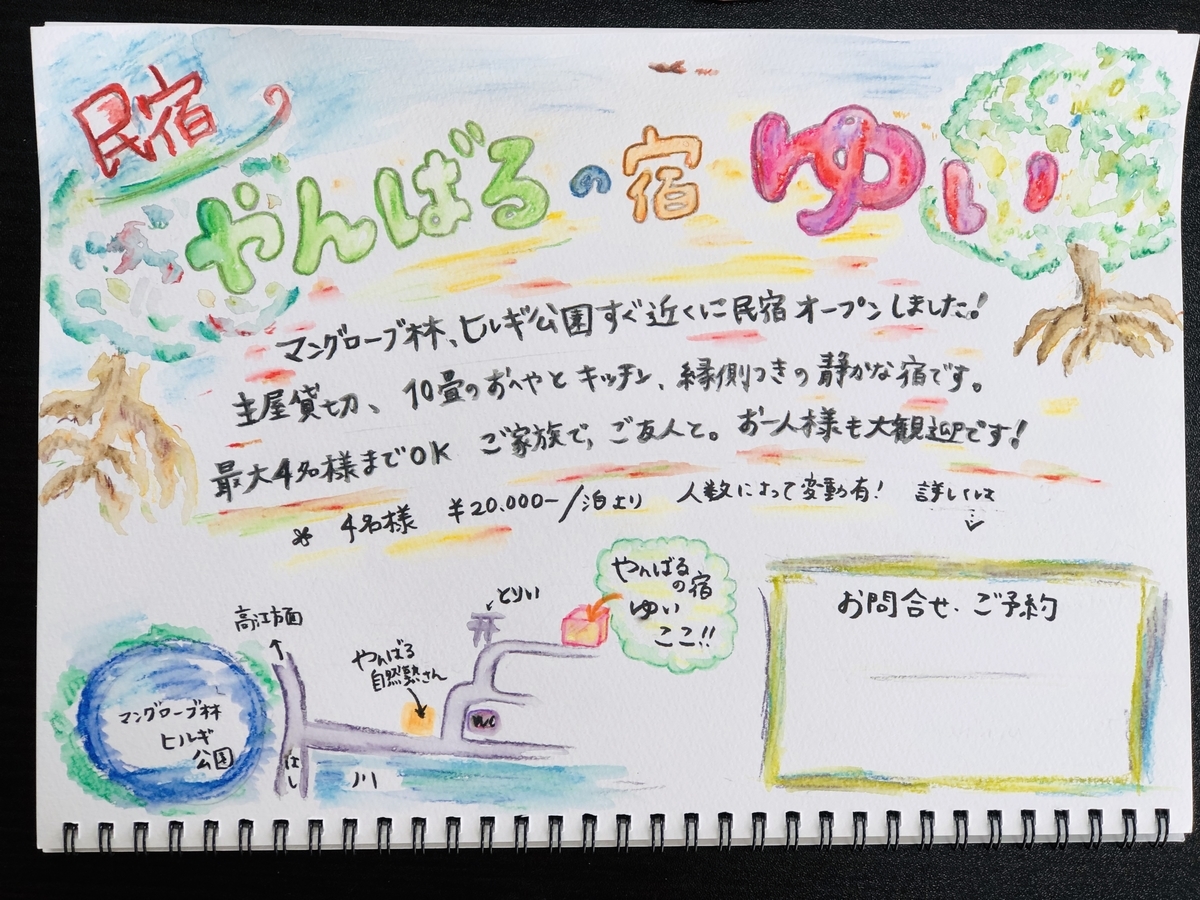 民宿
やんばるの宿 ゆい
マングローブ林、ヒルギ公園すぐ近くに民宿オープンしました!
主屋貸切、10畳のおへやとキッチン、縁側つきの静かな宿です。
最大4名様までOK ご家族で、ご友人と。お一人様も大観迎です!
※ 4名様 ¥20.000-/泊より 人数によって変動有! 詳しくは
やんばる
の宿
ゆい
ここ!!
とりい
高江方面
やんばる
自然塾さん
マングローブ林
ヒルギ
公園
はし
川
WC
お問合せ、ご予約